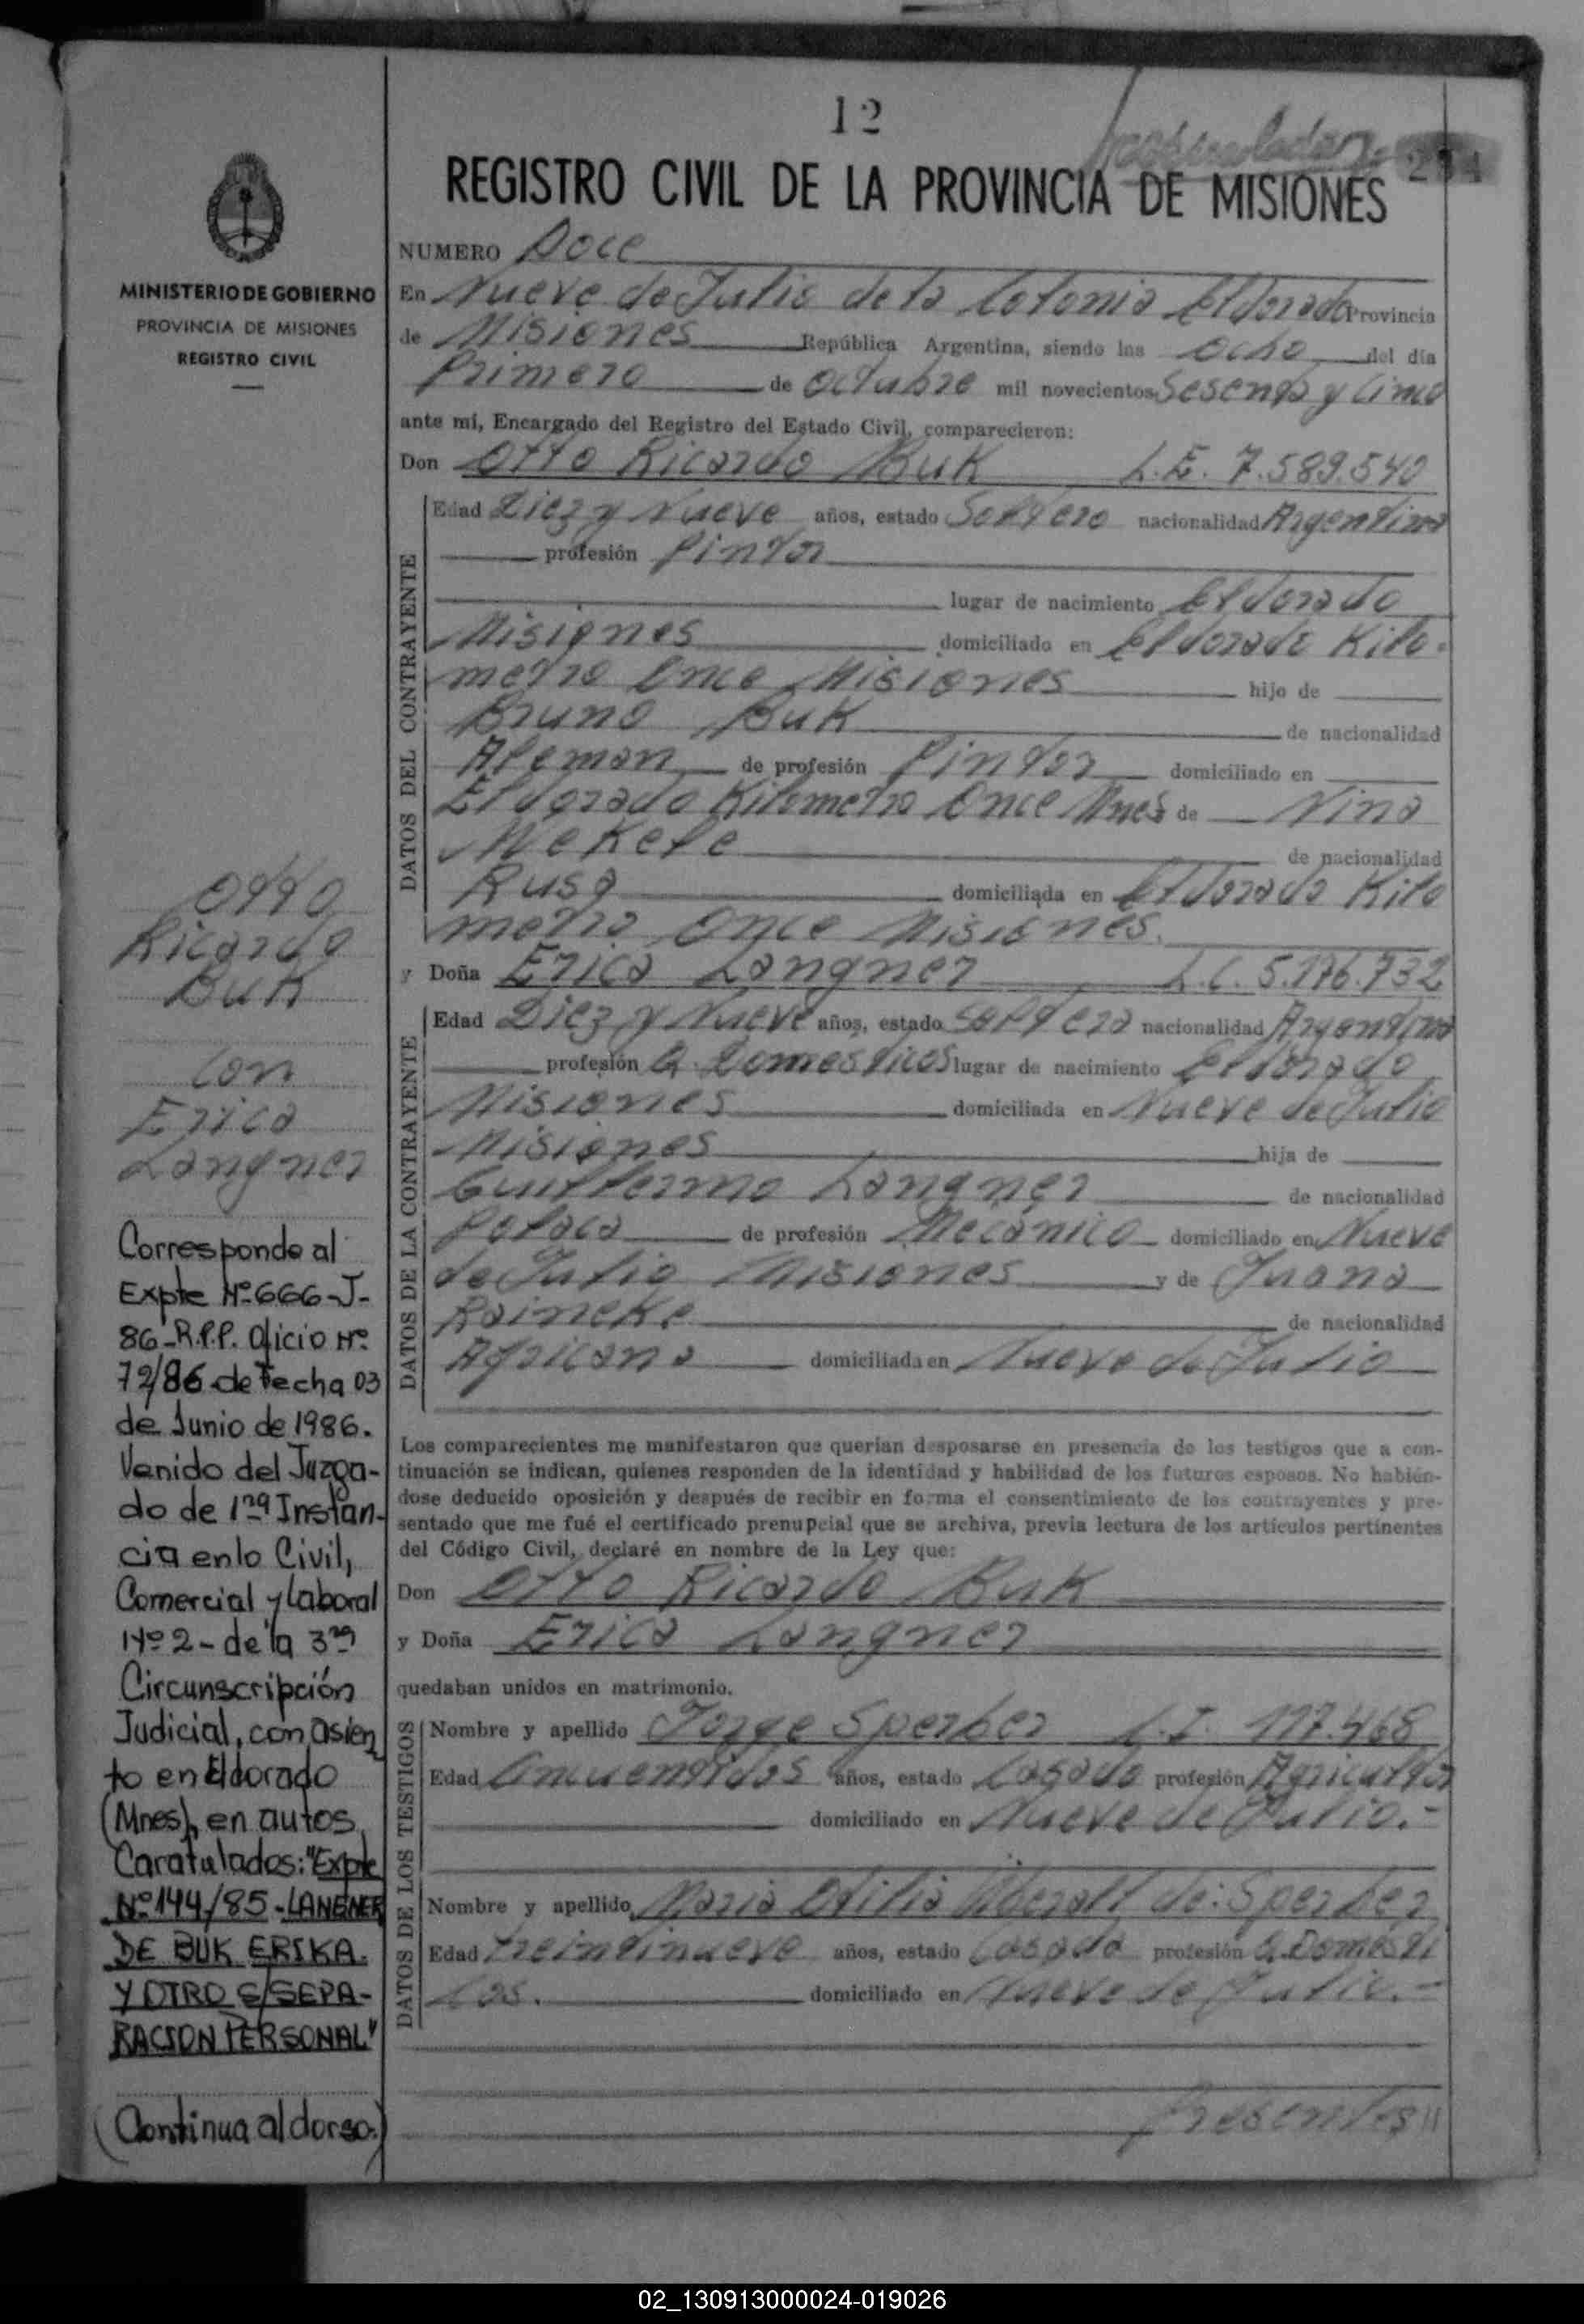 12
REGISTRO CIVIL DE LA PROVINCIA DE MISIONES
MINISTERIO DE GOBIERNO
PROVINCIA DE MISIONES
REGISTRO CIVIL
NUMERO Doce
En Nueve de Julio de la Colonia Eldorado Provincia
de Misiones República Argentina, siendo las Ocho del día
Primero de Octubre mil novecientos Sesenta y Cinco
ante mí, Encargado del Registro del Estado Civil, comparecieron:
Don Otto Ricardo Buk L.E. 7.589.540
DATOS DEL CONTRAYENTE
Edad Diez y Nueve años, estado Soltero nacionalidad Argentina
profesión Pintor
lugar de nacimiento Eldorado
Misiones domiciliado en Eldorado Kilo-
metro Once Misiones hijo de
Bruno Buk de nacionalidad
Aleman de profesión Pintor domiciliado en
Eldorado Kilometro Once Mnes de Nina
Wekele de nacionalidad
Rusa domiciliada en Eldorado Kilo
metro Once Misiones.
y Doña Erica Langner L.C. 5.176.732
DATOS DE LA CONTRAYENTE
Edad Diez y Nueve años, estado Soltera nacionalidad Argentina
profesión Q. Domesticos lugar de nacimiento Eldorado
Misiones domiciliada en Nueve de Julio
Misiones hija de
Guillermo Langner de nacionalidad
Polaca de profesión Mecanico domiciliado en Nueve
de Julio Misiones y de Juana
Raineke de nacionalidad
Africana domiciliada en Nueve de Julio
Los comparecientes me manifestaron que querían desposarse en presencia de los testigos que a con-
tinuación se indican, quienes responden de la identidad y habilidad de los futuros esposos. No habién-
dose deducido oposición y después de recibir en forma el consentimiento de los contrayentes y pre-
sentado que me fué el certificado prenupcial que se archiva, previa lectura de los artículos pertinentes
del Código Civil, declaré en nombre de la Ley que:
Don Otto Ricardo Buk
y Doña Erica Langner
quedaban unidos en matrimonio.
DATOS DE LOS TESTIGOS
Nombre y apellido Jorge Sperber C.I. 117.468
Edad Cincuentidos años, estado Casado profesión Agricultor
domiciliado en Nueve de Julio.-
Nombre y apellido Maria Otilia de: Sperber
Edad treintinueve años, estado Casada profesión Q. Domesti
cos. domiciliado en Nueve de Julio.-
Presentes//
Otto
Ricardo
Buk
con
Erica
Langner
Corresponde al
Expte Nº 666-J-
86-R.P.P. Oficio Nº
72/86 de Fecha 03
de Junio de 1986.
Venido del Juzga-
do de 1ra Instan-
cia en lo Civil,
Comercial y Laboral
Nº 2 - de la 3ra
Circunscripción
Judicial, con asien
to en Eldorado
(Mnes), en autos
Caratulados: "Expte
Nº 144/85-LANGNER
DE BUK ERIKA.
Y OTRO S/SEPA-
RACION PERSONAL"
(Continua al dorso.)
02_130913000024-019026